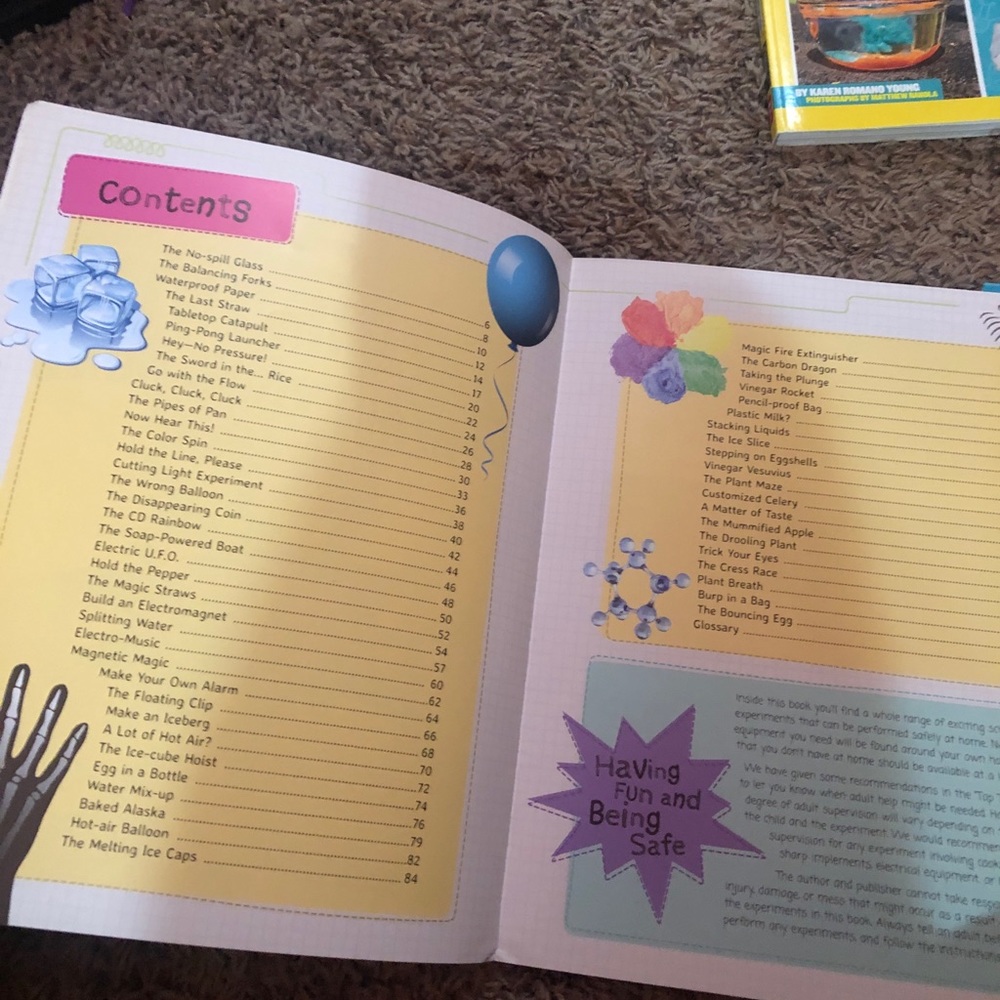 BY KAREN ROMANO YOUNG
PHOTOGRAPHS BY MATTHEW RAKOLA
Contents
The No-spill Glass 6
The Balancing Forks 8
Waterproof Paper 10
The Last Straw 12
Tabletop Catapult 14
Ping-Pong Launcher 17
Hey—No Pressure! 20
The Sword in the... Rice 22
Go with the Flow 24
Cluck, Cluck, Cluck 26
The Pipes of Pan 28
Now Hear This! 30
The Color Spin 33
Hold the Line, Please 36
Cutting Light Experiment 38
The Wrong Balloon 40
The Disappearing Coin 42
The CD Rainbow 44
The Soap-Powered Boat 46
Electric U.F.O. 48
Hold the Pepper 50
The Magic Straws 52
Build an Electromagnet 54
Splitting Water 57
Electro-Music 60
Magnetic Magic 62
Make Your Own Alarm 64
The Floating Clip 66
Make an Iceberg 68
A Lot of Hot Air? 70
The Ice-cube Hoist 72
Egg in a Bottle 74
Water Mix-up 76
Baked Alaska 79
Hot-air Balloon 82
The Melting Ice Caps 84
Magic Fire Extinguisher
The Carbon Dragon
Taking the Plunge
Vinegar Rocket
Pencil-proof Bag
Plastic Milk?
Stacking Liquids
The Ice Slice
Stepping on Eggshells
Vinegar Vesuvius
The Plant Maze
Customized Celery
A Matter of Taste
The Mummified Apple
The Drooling Plant
Trick Your Eyes
The Cress Race
Plant Breath
Burp in a Bag
The Bouncing Egg
Glossary
Having
Fun and
Being
Safe
Inside this book you'll find a whole range of exciting
experiments that can be performed safely at home.
equipment you need will be found around your own
that you don't have at home should be available at a
We have given some recommendations in the "Top
to let you know when adult help might be needed.
degree of adult supervision will vary depending on
the child and the experiment. We would recommend
supervision for any experiment involving
sharp implements, electrical equipment, or
The author and publisher cannot take
injury, damage, or mess that might occur as a result
the experiments in this book. Always tell an adult
perform any experiments, and follow the instructions